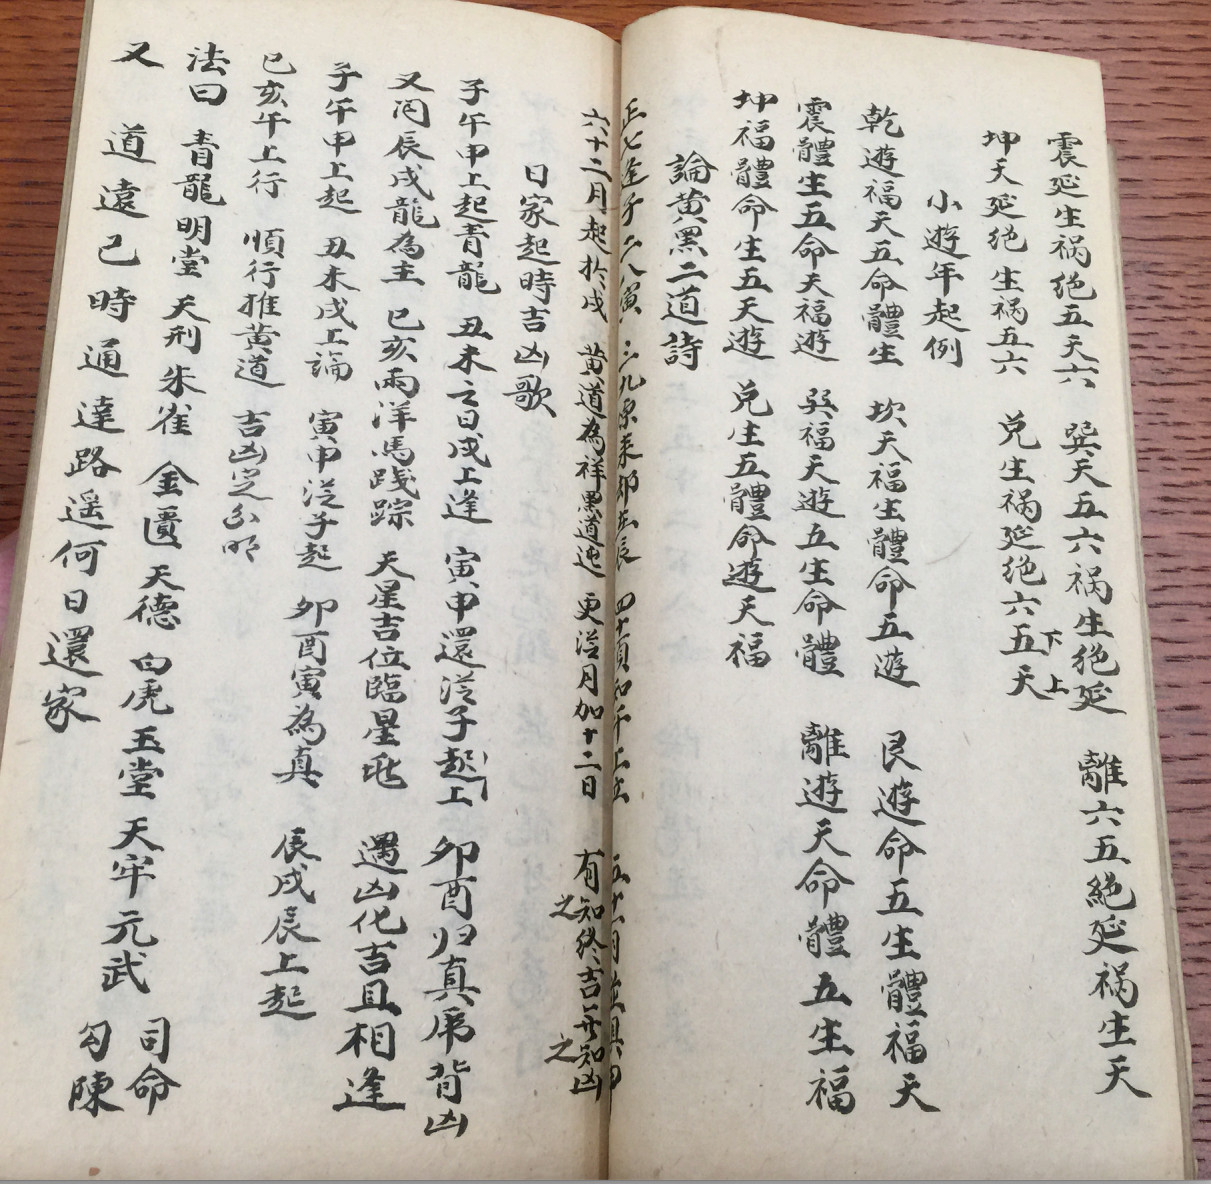 震延生祸絶五天六 巽天五六祸生絶延 離六五絶延祸生天
坤天延绝生祸五六 兑生祸延绝六五天
下 上
小遊年起例
乾遊福天五命體生 坎天福生體命五遊 艮遊命五生體福天
震體生五命天福遊 巽福天遊五生命體 離遊天命體五生福
坤福體命生五天遊 兑生五體命遊天福
論黄黑二道詩
正七逢子二八寅 三九原来卯 辰 四十須知午上
六十二月起於戌 黄道為祥黑道迍 更從月加十二日 有知終吉 知凶
之 之
日家起時吉凶歌
子午申上起青龍 丑未之日戌上逢 寅申還從子起上 卯酉归真 背凶
又问辰戌龍為主 巳亥两洋馬踐踪 天星吉位臨星 遇凶化吉且相逢
子午申上起 丑未戌上論 寅申從子起 卯酉寅為真 辰戌辰上起
巳亥午上行 順行推黄道 吉凶定分明
法曰 青龍明堂 天刑朱雀 金匱天德 白虎玉堂 天牢元武 司命勾陳
又 道遠已時通達路遥何日還家